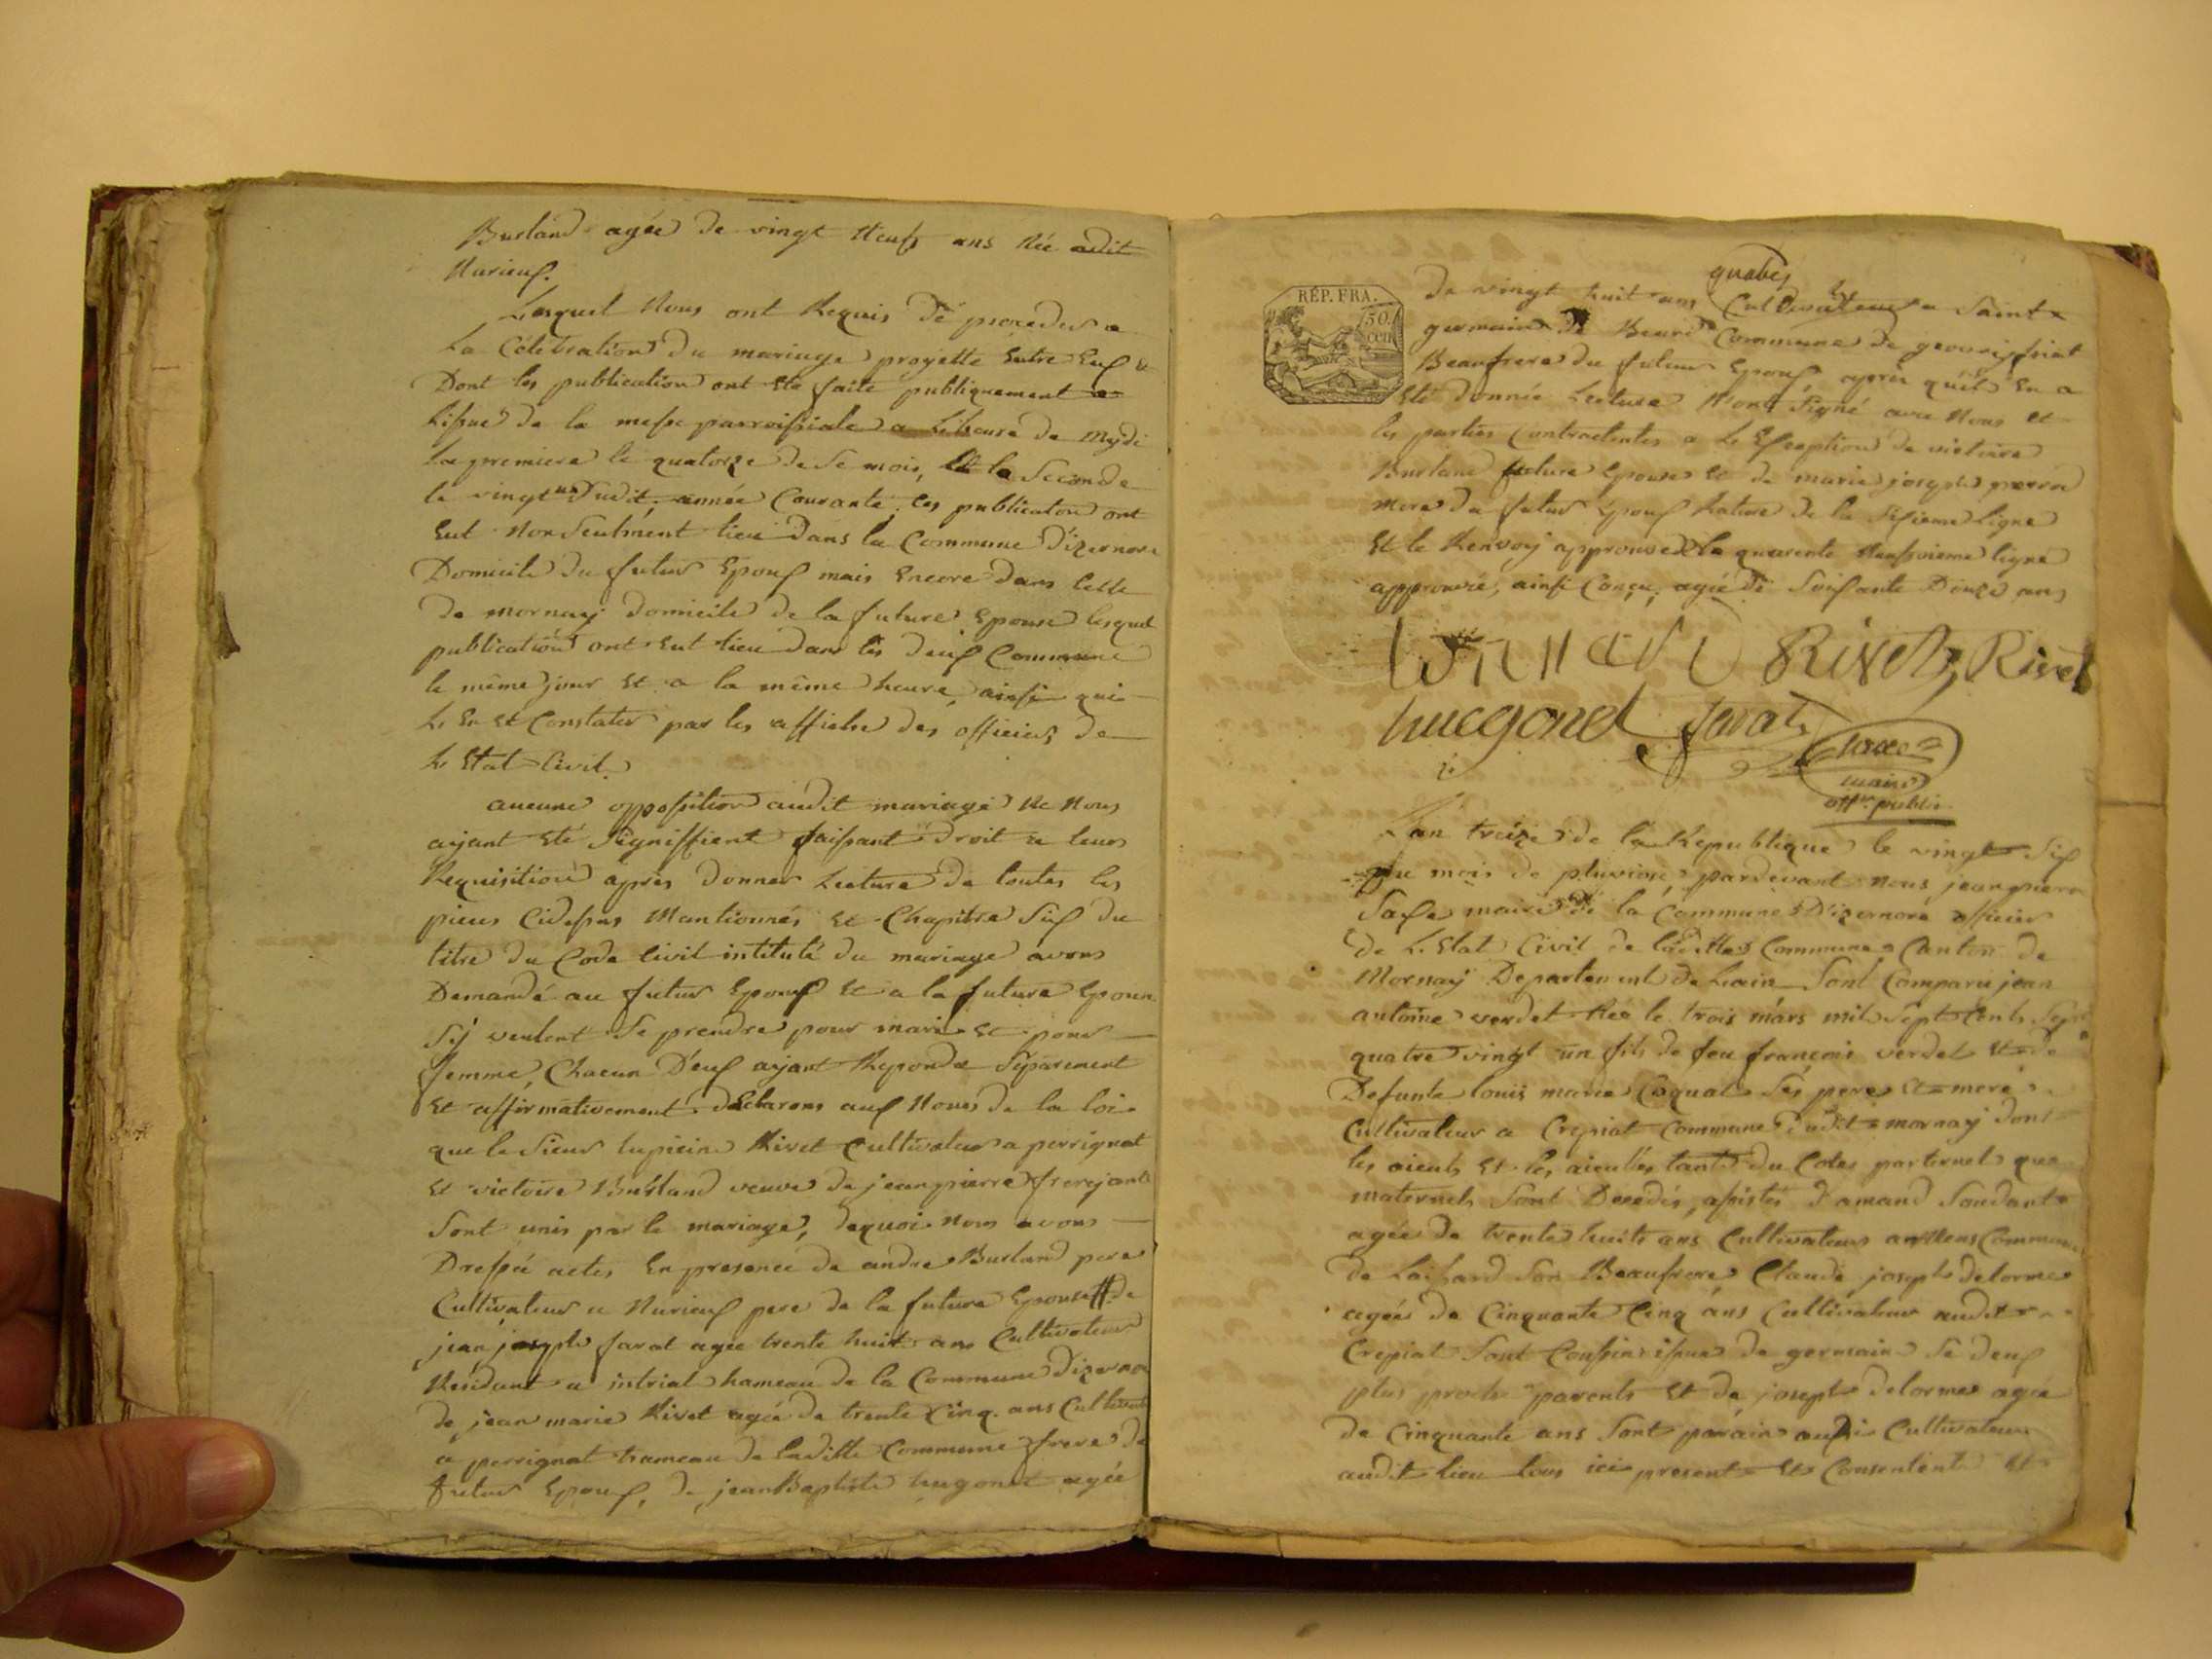 Burland agée de vingt Neufs ans Née audit
Nurieux.
Lesquel Nous ont Requis de proceder a
La Célébration du mariage progetté Entre Eux &
Dont les publication ont été faite publiquement a
Lissue de la messe parroissiale a Lheure de Mydi
La premiere le quatorze de Se mois, Et la Seconde
le vingt un dudit, année Courante, Ces publication ont
Eut Non Seulment lieu Dans la Commune Dizernore
Domicile du futur Epoux mais Encore Dans Celle
de mornay Domicile de la future Epouse lesquel
publication ont Eut lieu dans les deux Commune
le même jour Et a la même heure, ainsi qui
L En Et Constater par les affiche des officiers de
L Etat Civil.
aucune opposition audit mariage Ne Nous
ayant été Signiffient faissant Droit a leur
Requisition après Donner Lecture de toutes les
pieces Cidessus Mantionnés Et Chapitre Six du
titre du Code Civil intitulé du mariage avons
Demandé au futur Epoux Et a la future Epouse
Sij veulent Se prendre pour mari Et pour
femme, Chacun D'eux ayant Repondu Séparement
Et affirmativement déClarons aux Nom de la loi
que le Sieur lupicin Rivet Cultivateur a perrignat
Et victoire Burland veuve de jean pierre frerejant
Sont unis par le mariage, dequoi Nous avons
Dressé actes En presence de andre Burland pere
Cultivateur a Nurieux pere de la future Epouse # de
jean joseph favat agée trente huit ans Cultivateur
Residant a intriat hameau de la Commune Dizernore
de jean marie Rivet agée de trente Cinq ans Cultivateur
a perrignat hameau de laditte Commune frere du
futur Epoux, de jean Baptiste hugonet agée
quabes
de vingt huit ans Cultivateur a Saint
germain de Beard Commune de geovrissiat
Beaufrere du futur Epoux, après qu'il En a
Eté Donnée Lecture N'ont Signé avec Nous Et
les parties Contractentes a L Exception de victoire
Burland future Epouse Et de marie joseph
mere du futur Epoux Rature de la Sixieme Ligne
Et le Renvoy approuvé la quarente Neufvieme ligne
approuvée, ainsi Conçu, agée de Soixante Douze ans
Rivet, Rivet
huegonet favat
maire
offr. public
Lan treize de la Republique le vingt Six
du mois de pluviose, pardevant nous jean pierre
maire de la Commune Dizernore officier
de L Etat Civil de laditte Commune Canton de
Mornay Departement de Lain Sont Comparu jean
antoine verdet Née le trois mars mil Sept Cents
quatre vingt un fils de feu françois verdet Et de
Defunte louis marie Coquat Ses pere Et mere
Cultivateur a Crepiat Commune dudit mornay dont
les aieuls Et les aieulles tant du Cotés parternel que
maternels Sont Decedés, assistés Damand Sondant
agée de trente huits ans Cultivateur Commune
de Son Beaufrere Claude joseph delorme
agée de Cinquante Cinq ans Cultivateur audit
Crepiat Sont Coussins issue de germain Se deux
plus proche parents Et de joseph delorme agée
de Cinquante ans Sont parain aussi Cultivateur
audit Lieu tous ici present Et Consentent Et
RÉP. FRA.
50
cen